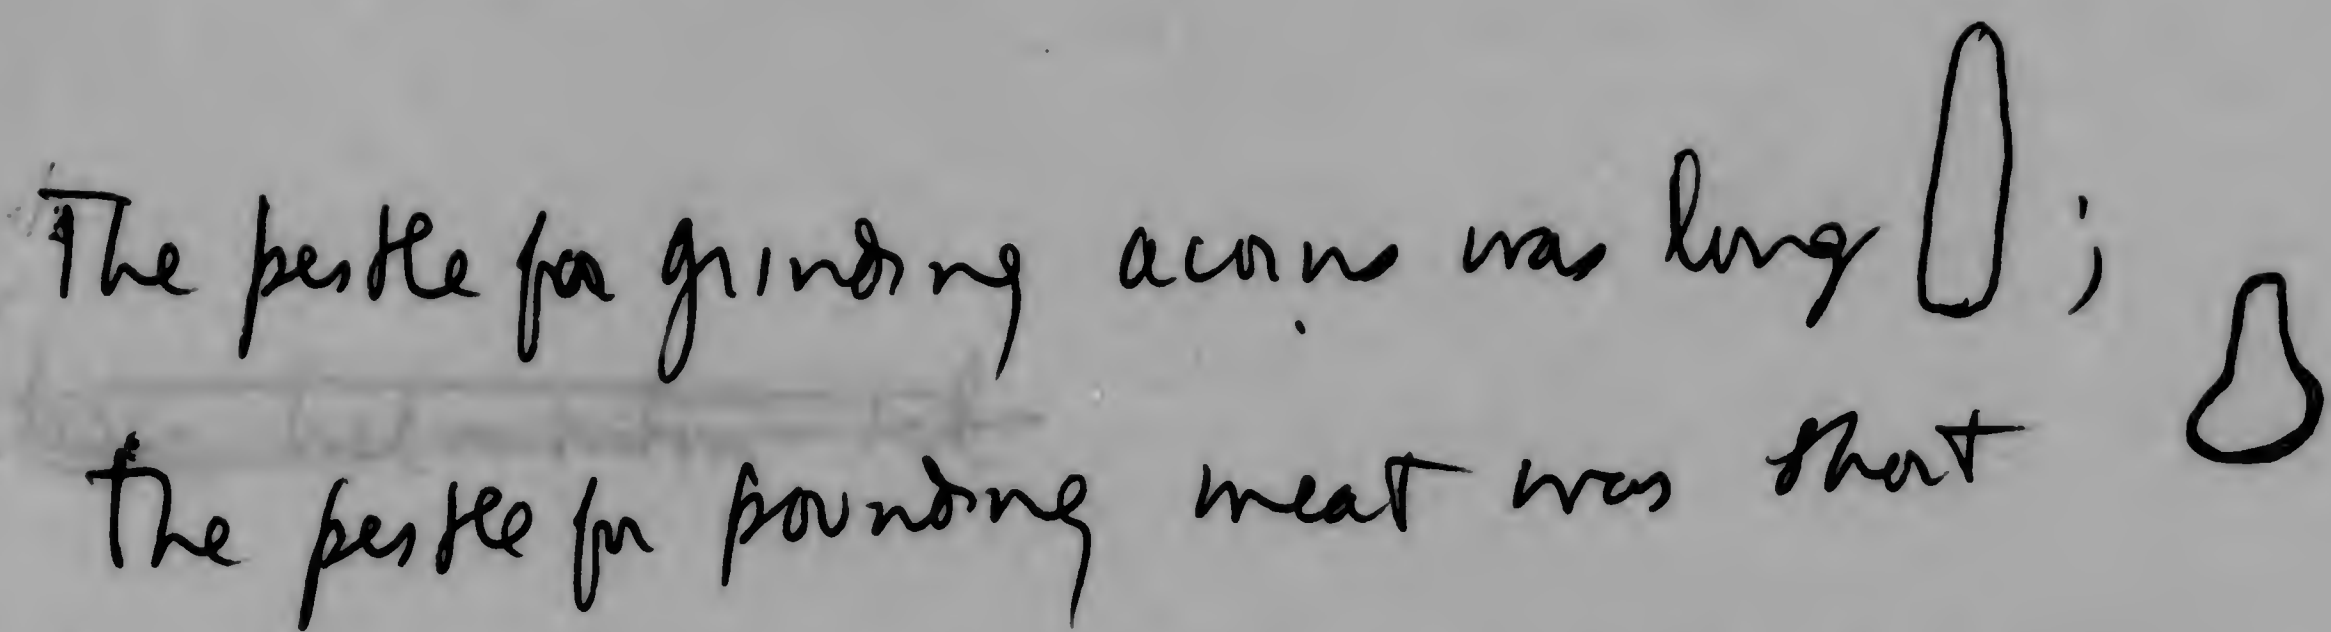 The pestle for grinding acorns was long ;
the pestle for pounding meat was short